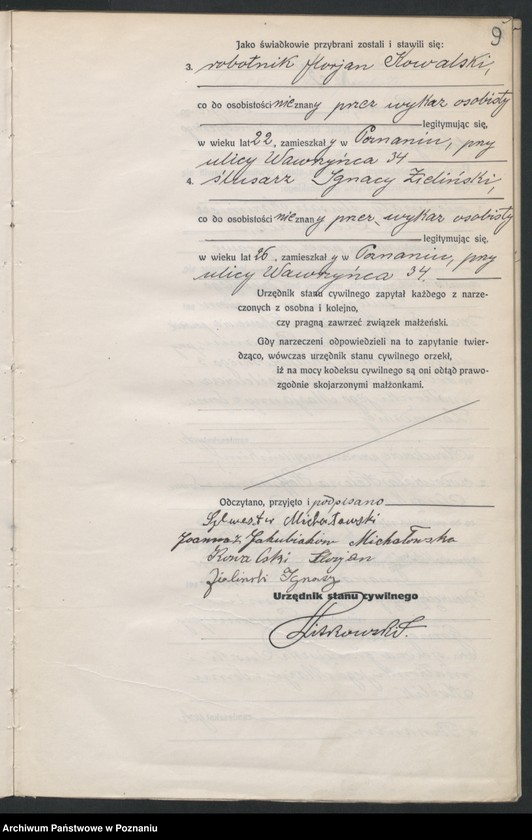 9
Jako świadkowie przybrani zostali i stawili się:
3. robotnik Florjan Kowalski,
co do osobistości nie znany przez wykaz osobisty
legitymując się,
w wieku lat 22, zamieszkały w Poznaniu, przy
ulicy Wawrzyńca 34
4. ślusarz Ignacy Zieliński,
co do osobistości nie znany przez wykaz osobisty
legitymując się,
w wieku lat 26, zamieszkały w Poznaniu, przy
ulicy Wawrzyńca 34.
Urzędnik stanu cywilnego zapytał każdego z narze-
czonych z osobna i kolejno,
czy pragną zawrzeć związek małżeński.
Gdy narzeczeni odpowiedzieli na to zapytanie twier-
dząco, wówczas urzędnik stanu cywilnego orzekł,
iż na mocy kodeksu cywilnego są oni odtąd prawo-
zgodnie skojarzonymi małżonkami.
Odczytano, przyjęto i podpisano
Sylwester Michałowski
Joanna z Jakubiaków Michałowska
Kowalski Florjan
Zieliński Ignacy
Urzędnik stanu cywilnego
Archiwum Państwowe w Poznaniu